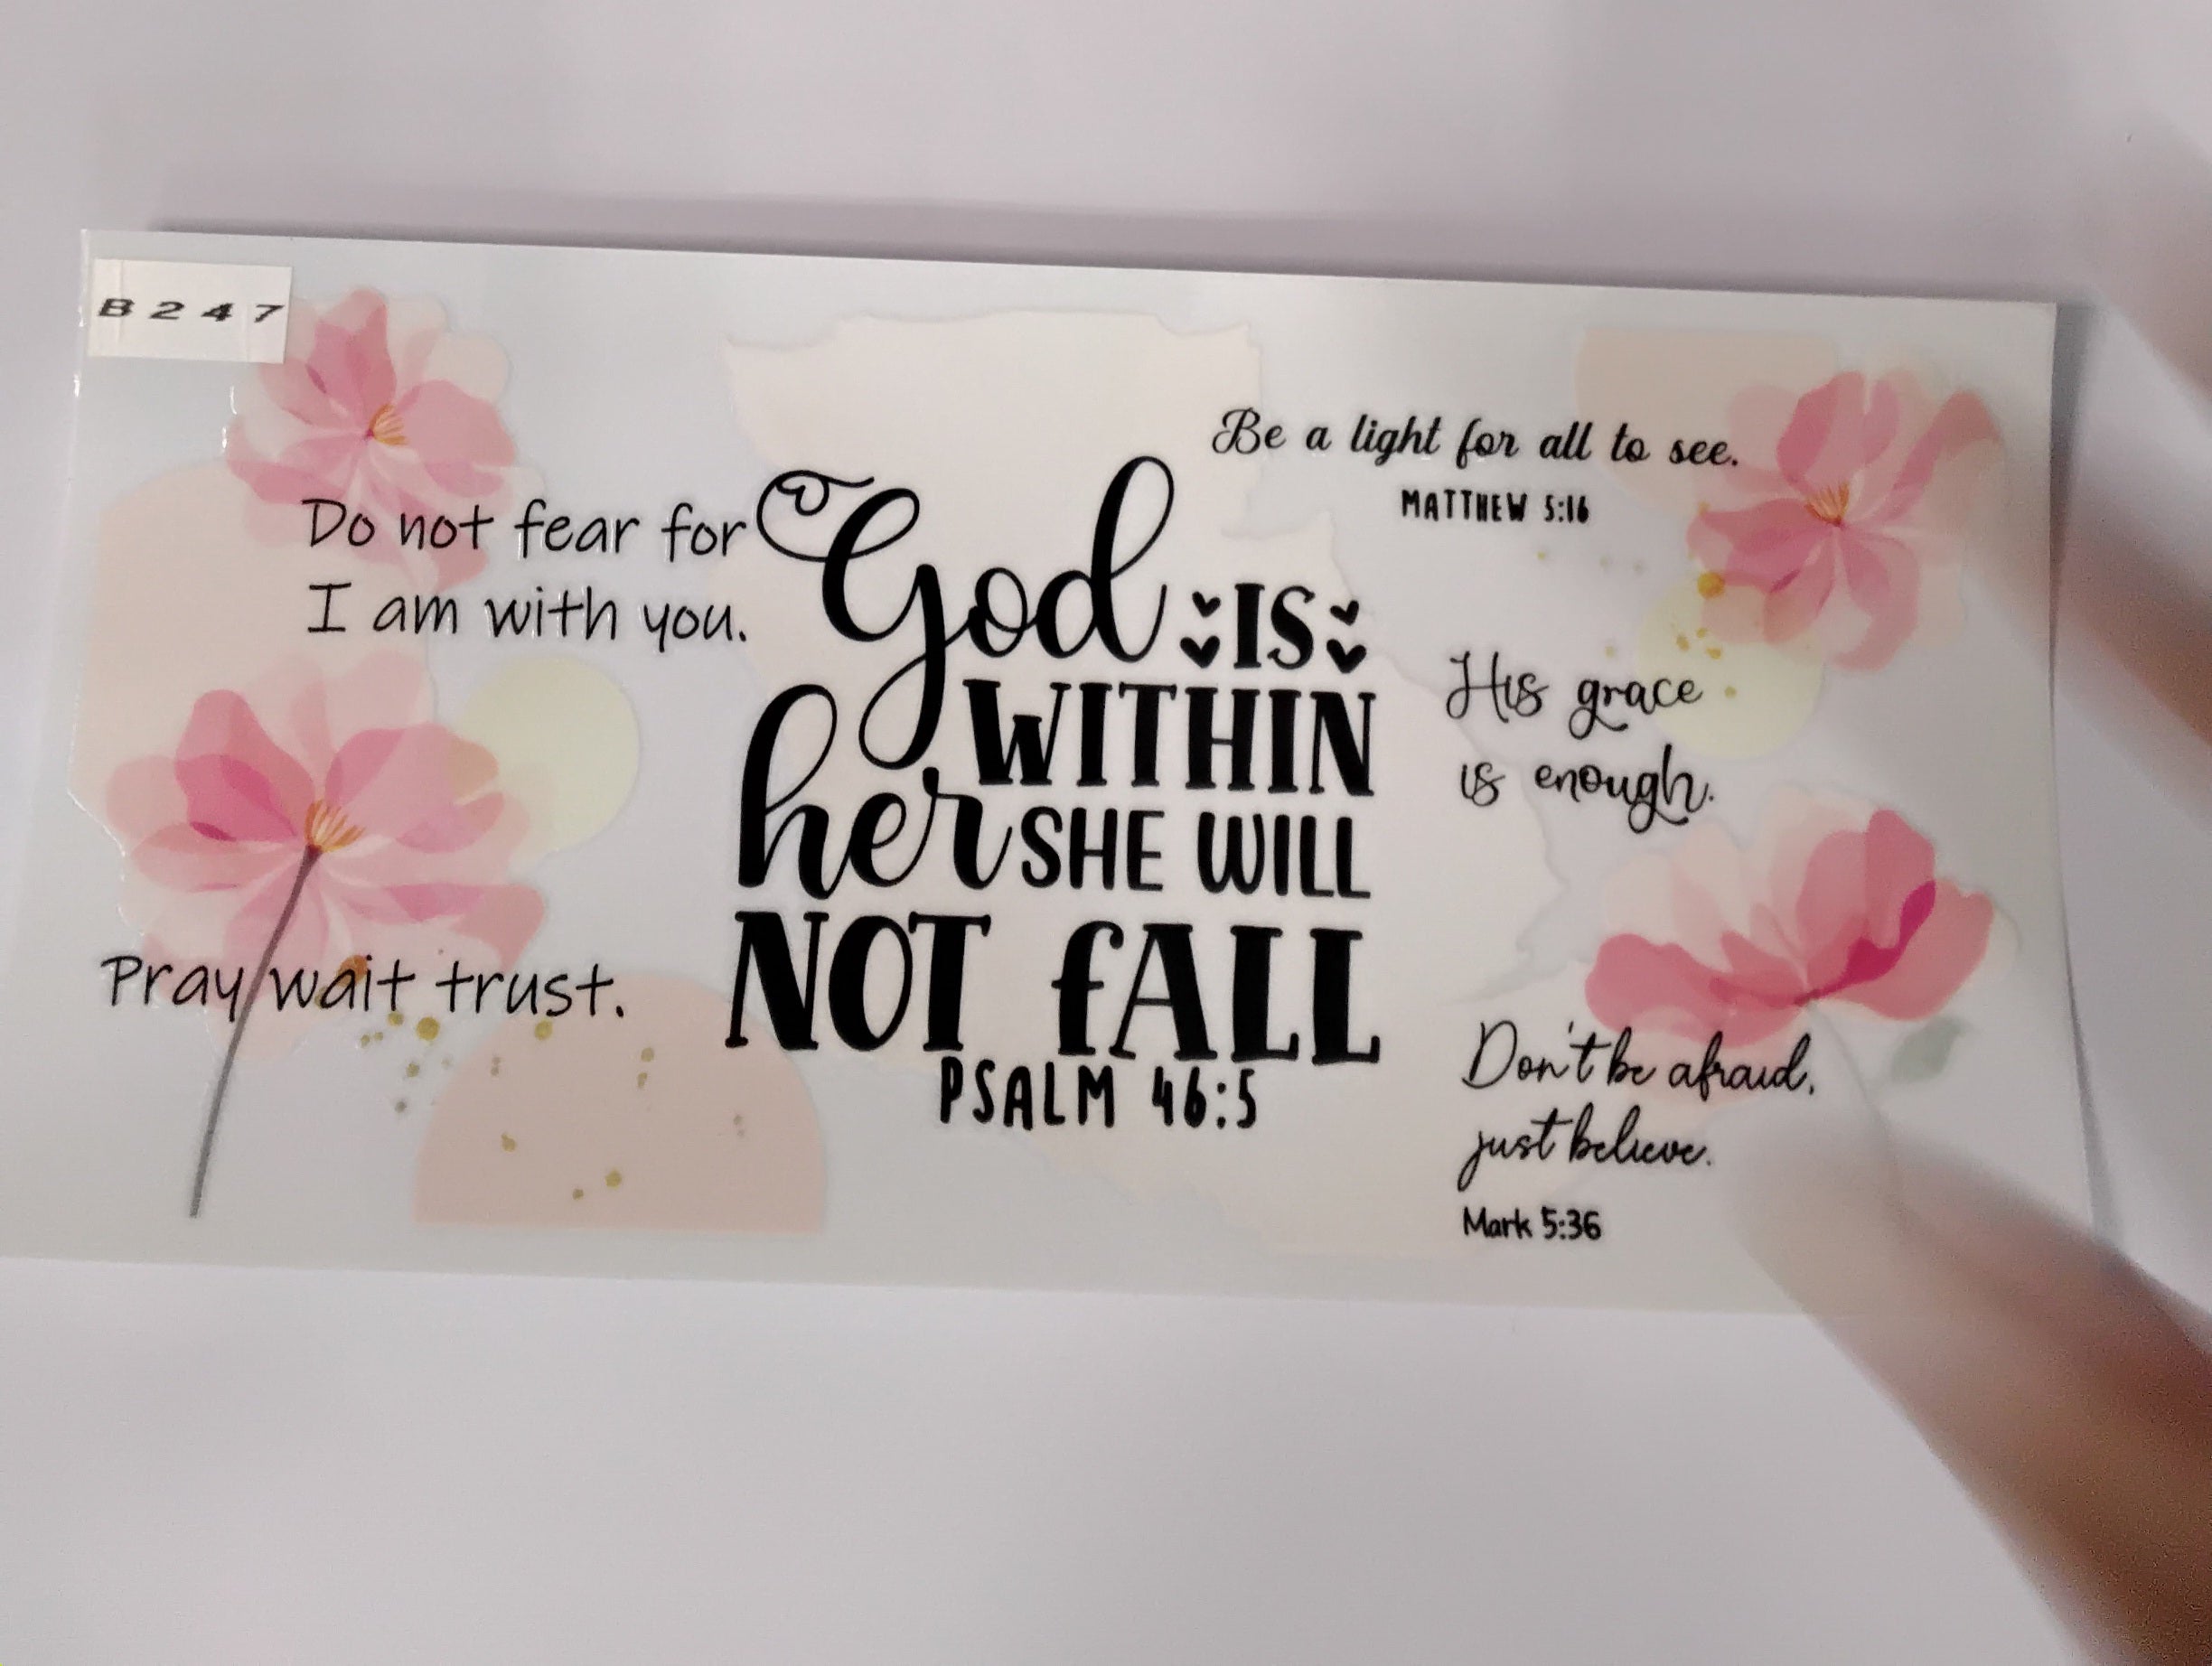 B 2 4 7
Do not fear for
I am with you.
Pray wait trust.
God IS
WITHIN
her SHE WILL
NOT fALL
PSALM 46:5
Be a light for all to see.
MATTHEW 5:16
His grace
is enough.
Don't be afraid,
just believe.
Mark 5:36